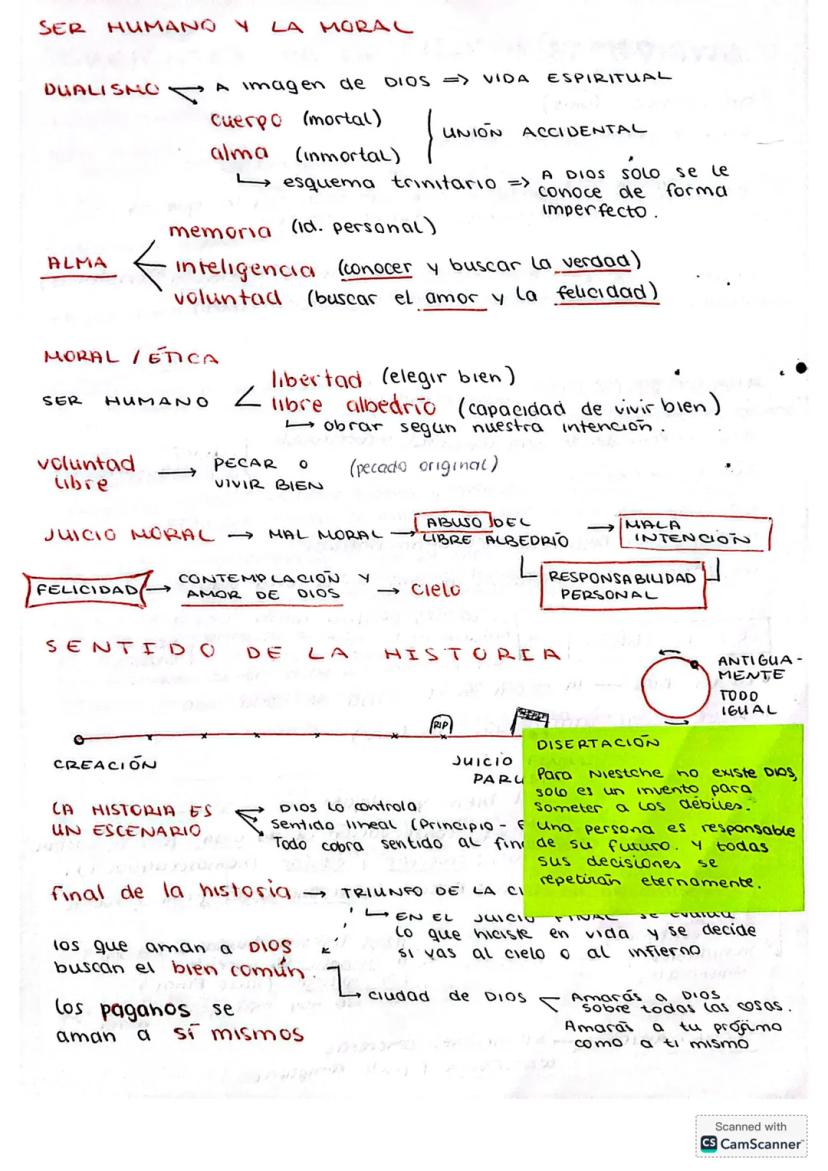 SER HUMANO Y LA MORAL
DUALISMO → A imagen de DIOS => VIDA ESPIRITUAL
cuerpo (mortal)
alma (inmortal)
UNIÓN ACCIDENTAL
↳ esquema trinitario => A DIOS SÓLO SE LE
conoce de forma
imperfecto.
ALMA
memoria (id. personal)
inteligencia (conocer y buscar la verdad)
voluntad (buscar el amor y la felicidad)
MORAL / ÉTICA
SER HUMANO
libertad (elegir bien)
libre albedrío (capacidad de vivir bien)
↳ obrar según nuestra intención.
voluntad libre → PECAR O VIVIR BIEN (pecado original)
JUICIO MORAL → MAL MORAL → ABUSO DEL LIBRE ALBEDRÍO → MALA INTENCIÓN
RESPONSABILIDAD PERSONAL
FELICIDAD → CONTEMPLACIÓN Y AMOR DE DIOS → Cielo
SENTIDO DE LA HISTORIA
ANTIGUA-
MENTE
TODO
IGUAL
RIP
CREACIÓN
JUICIO
PARU
DISERTACIÓN
Para Niestche no existe DIOS,
solo es un invento para
someter a los débiles.
Una persona es responsable
de su futuro. y todas
sus decisiones se
repetirán eternamente.
LA HISTORIA ES
UN ESCENARIO
DIOS lo controla
Sentido lineal (Principio -
Todo cobra sentido al fin
final de la historia → TRIUNFO DE LA CI
↳ EN EL JUICIO FINAL se evalúa
lo que hiciste en vida y se decide
si vas al cielo o al infierno
los que aman a DIOS
buscan el bien común.
Ciudad de DIOS
Amarás a DIOS
sobre todas las cosas.
Amarás a tu prójimo
como a ti mismo
los paganos se
aman a sí mismos
Scanned with
CS CamScanner